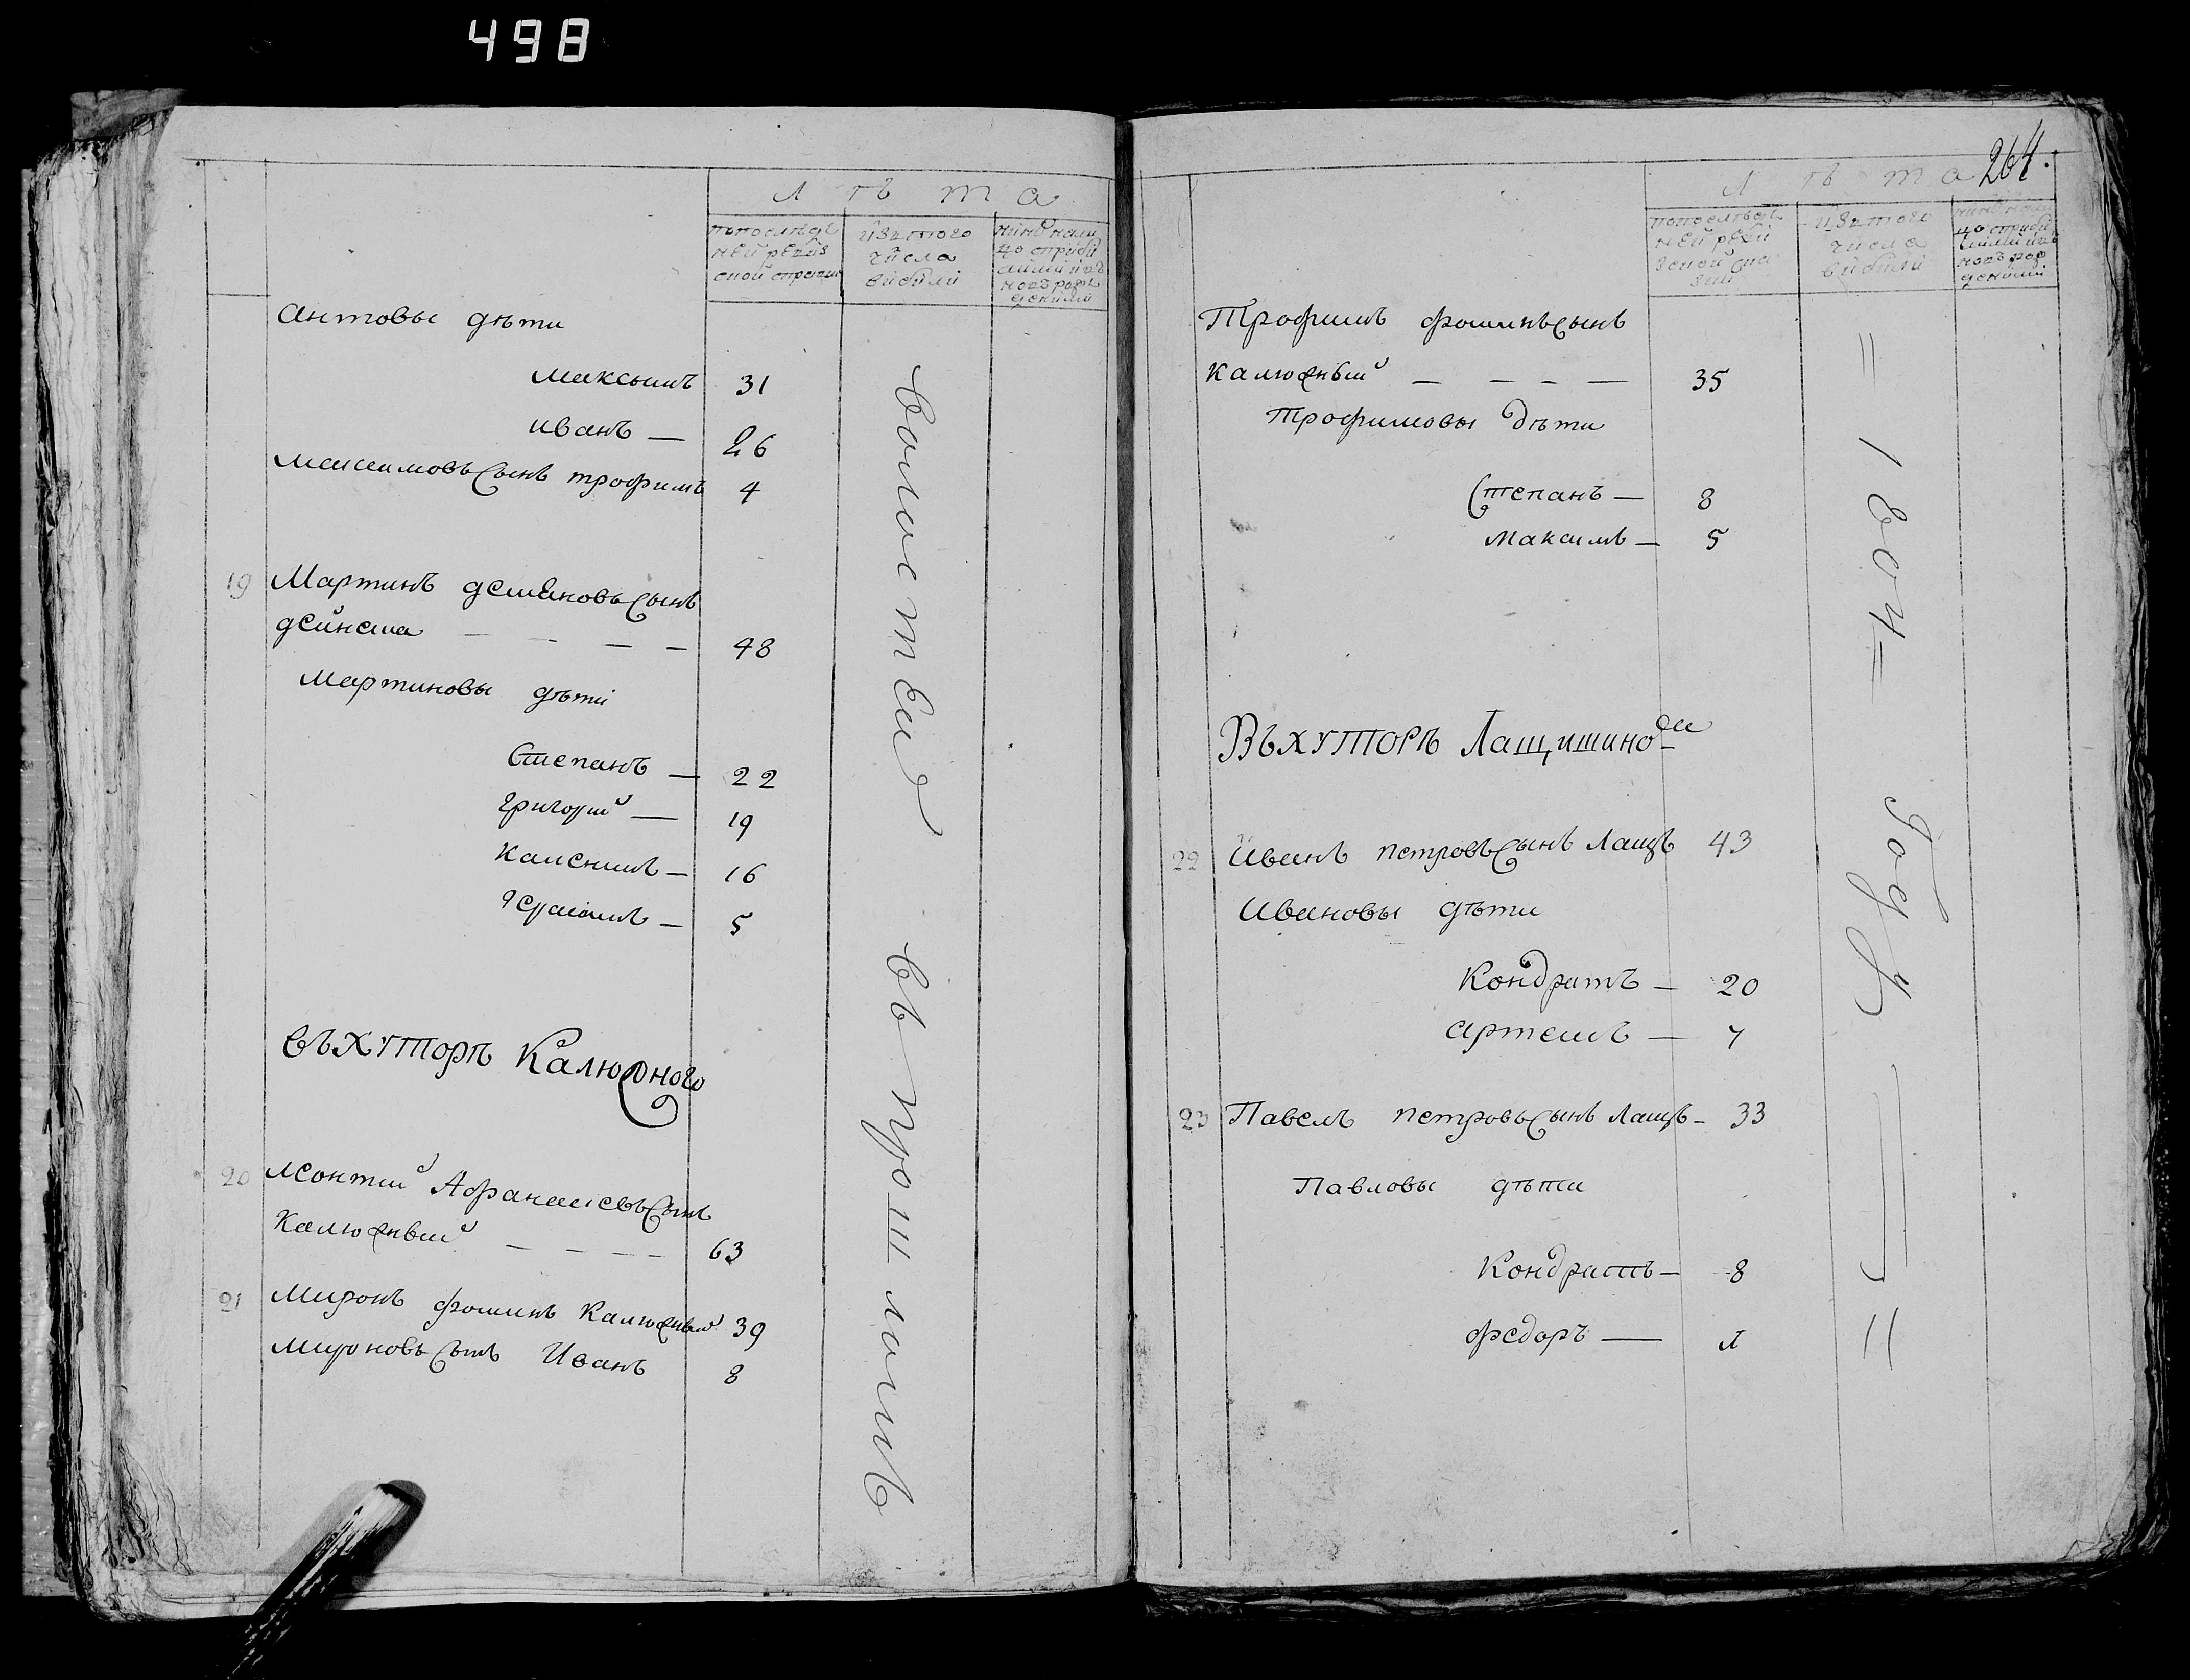 498
Л ѣ т а
попослѣд
ней ревиз
ской справки
изъ того
числа
выбыли
Антовы дѣти
максымъ 31
иванъ — 26
максимовъ сынъ трофимъ 4
19 Мартинъ демяновъ сынъ
дейнека — — — — 48
мартиновы дѣти
Степанъ — 22
григорий — 19
калѣнимъ — 16
герасимъ — 5
въ хуторѣ Калюжного
20 леонтий Афанасиевъ сынъ
Калюжный — — — — 63
21 миронъ фоминъ Калюжный 39
мироновъ сынъ Иванъ 8
въ прошломъ
264.
Л ѣ т а
попослѣд
ней реви
зской ска
зки
изъ того
числа
выбыли
Трофимъ фоминъ сынъ
калюжный — — — — 35
трофимовы дѣти
Степанъ — 8
максимъ — 5
Въ хуторѣ Лащишино
22 Иванъ петровъ сынъ Лащъ 43
Ивановы дѣти
Кондратъ — 20
артемъ — 7
23 Павелъ петровъ сынъ Лащъ — 33
Павловы дѣти
Кондратъ — 8
федоръ —
= 1804 = году =